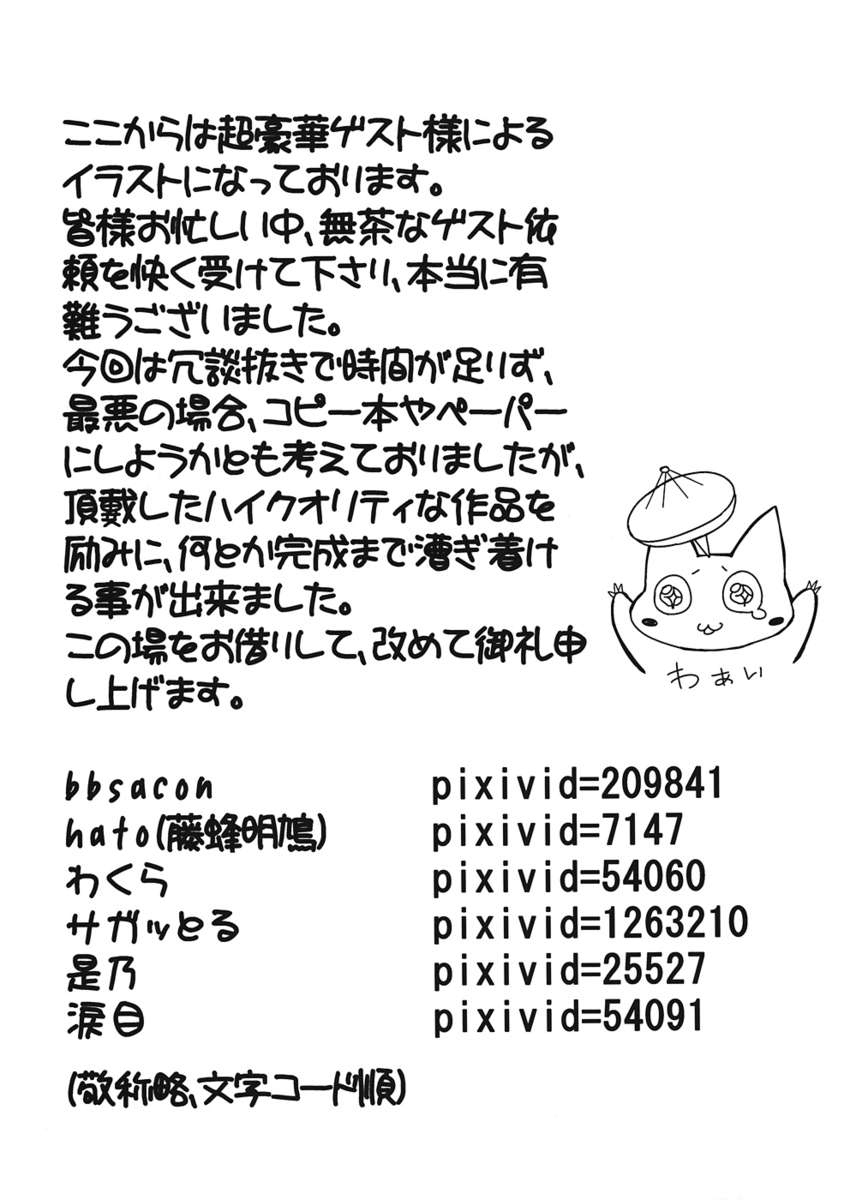 ここからは超豪華ゲスト様による
イラストになっております。
皆様お忙しい中、無茶なゲスト依
頼を快く受けて下さり、本当に有
難うございました。
今回は冗談抜きで時間が足りず、
最悪の場合、コピー本やペーパー
にしようかとも考えておりましたが、
頂戴したハイクオリティな作品を
励みに、何とか完成まで漕ぎ着け
る事が出来ました。
この場をお借りして、改めて御礼申
し上げます。
わぁい
bbsacon pixivid=209841
hato(藤蜂明鳩) pixivid=7147
わくら pixivid=54060
サガッとる pixivid=1263210
是乃 pixivid=25527
涙目 pixivid=54091
(敬称略、文字コード順)